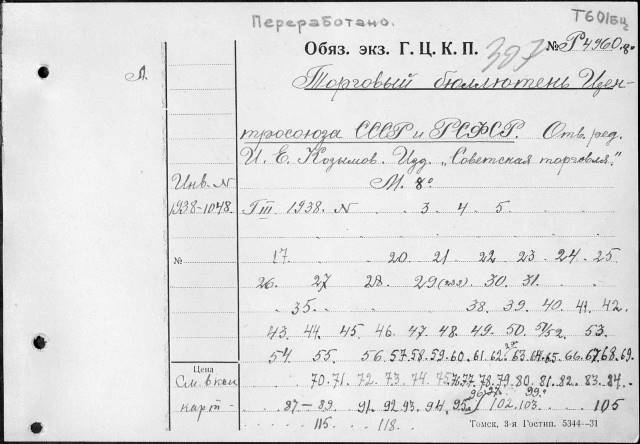 Переработано.
Т601бц
Обяз. экз. Г. Ц. К. П. 387 № Р4960.8°
Л. Торговый бюллютень Цен-
тросоюза СССР и РСФСР. Отв. ред.
И. Е. Козымов. Изд. „Советская торговля."
Инв. N М. 8°
1938-1048. Г III 1938. N . . 3. 4. 5.
17. . . . 20. 21. 22. 23. 24. 25
№
26. 27 28. 29 30. 31.
. 35. . . . . 38. 39. 40. 41. 42.
43. 44. 45. 46. 47. 48. 49. 50. 51/52. 53.
54 55. 56. 57. 58. 59. 60. 61. 62. 63. 64. 65. 66. 67. 68. 69.
Цена
См. в кол 70. 71. 72. 73. 74. 75. 76. 77. 78. 79. 80. 81. 82. 83. 84.
карт 87-89. 91. 92. 93. 94. 95 96 97. 99. 102. 103. 105
115 118.
Томск, 3-я Гостип. 5344—31